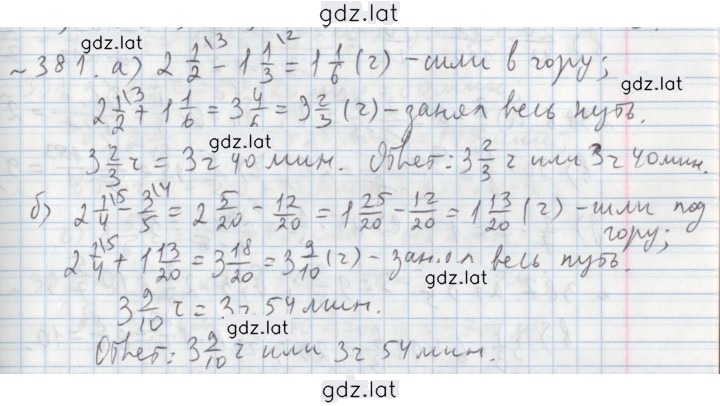 gdz.lat
gdz.lat
№381. а) 2 1/2 \3 - 1 1/3 \2 = 1 1/6 (ч) - шли в гору;
2 1/2 \3 + 1 1/6 = 3 4/6 = 3 2/3 (ч) - занял весь путь.
gdz.lat
3 2/3 ч = 3ч 40 мин. Ответ: 3 2/3 ч или 3ч 40мин.
б) 2 1/4 \5 - 3/5 \4 = 2 5/20 - 12/20 = 1 25/20 - 12/20 = 1 13/20 (ч) - шли под
гору;
2 1/4 \5 + 1 13/20 = 3 18/20 = 3 9/10 (ч) - занял весь путь.
gdz.lat
3 9/10 ч = 3ч 54 мин.
gdz.lat
Ответ: 3 9/10 ч или 3ч 54 мин.
gdz.lat